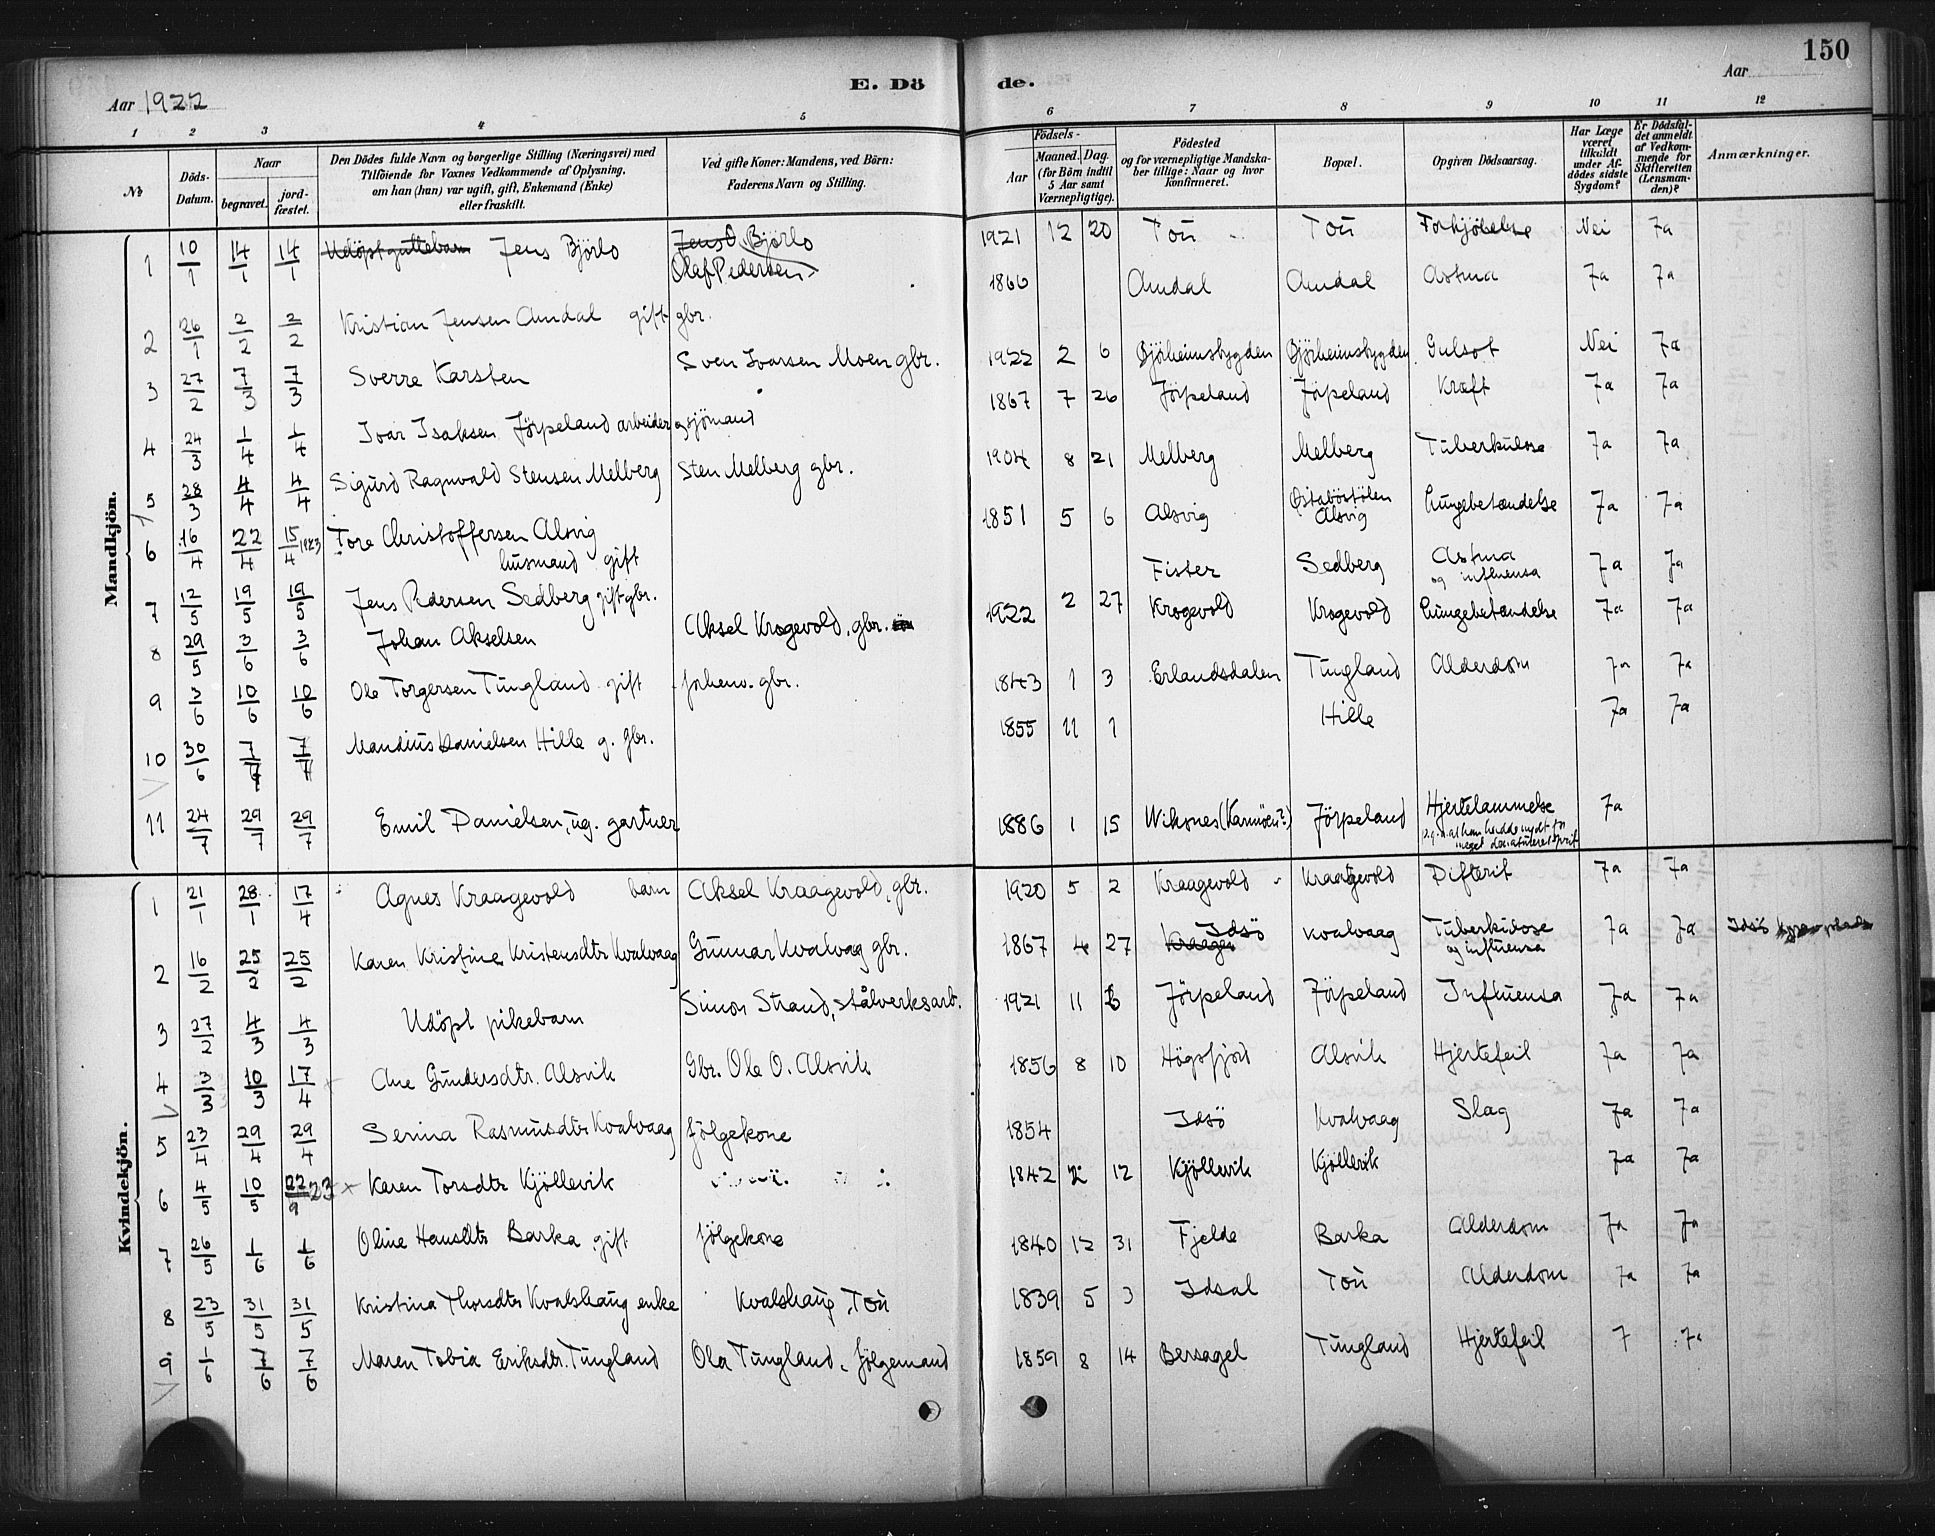 E. Döde.
150
Aar 1922
Aar
1 2 3 4 5 6 7 8 9 10 11 12
No
Döds-Datum.
Naar
begravet.
jord-fæstet.
Den Dödes fulde Navn og borgerlige Stilling (Næringsvei) med
Tilföiende for Voxnes Vedkommende af Oplysning,
om han (hun) var ugift, gift, Enkemand (Enke)
eller fraskilt.
Ved gifte Koner: Mandens, ved Börn:
Faderens Navn og Stilling.
Födsels-
Aar
Maaned. Dag.
(for Börn indtil
5 Aar samt
Værnepligtige).
Födested
og for værnepligtige Mandska-
ber tillige: Naar og hvor
konfirmeret.
Bopæl.
Opgiven Dödsaarsag.
Har Læge
været
tilkaldt
under Af-
dödes sidste
Sygdom?
Er Dödsfal-
det anmeldt
af Vedkom-
mende for
Skifteretten
(Lensman-
den)?
Anmærkninger.
Mandkjön.
1 10/1 14/1 14/1 Udöpt guttebarn Jens Björlo Jens O. Björlo Olaf Pedersen 1921 12 20 Tou Tou Forkjölelse Nei Ja
2 26/1 2/2 2/2 Kristian Jensen Amdal gift gbr. 1866 Amdal Amdal Astma Ja Ja
3 27/2 7/3 7/3 Sverre Karsten Sven Ivarsen Moen gbr. 1922 2 6 Björheimsbygden Björheimsbygden Gulsot Nei Ja
4 24/3 1/4 1/4 Ivar Isaksen Jörpeland arbeider og sjömand 1867 7 26 Jörpeland Jörpeland Kræft Ja Ja
5 28/3 4/4 4/4 Sigurd Ragnvald Stensen Melberg Sten Melberg gbr. 1904 8 21 Melberg Melberg Tuberkulose Ja Ja
6 16/4 22/4 15/4 1923 Tore Christoffersen Alsvig
husmand gift 1851 5 6 Alsvig Østabøstölen Alsvig Lungebetændelse Ja Ja
7 12/5 19/5 19/5 Jens Pedersen Sedberg gift gbr. Fister Sedberg Astma og influensa Ja Ja
8 29/5 3/6 3/6 Johan Akselsen Aksel Krogevold, gbr. 1922 2 27 Krogevold Krogevold Lungebetændelse Ja Ja
9 3/6 10/6 10/6 Ole Torgersen Tungland gift forhenv. gbr. 1843 1 3 Erlandsdalen Tungland Alderdom Ja Ja
10 30/6 7/7 7/7 Mandius Danielsen Hille g. gbr. 1855 11 1 Hille Ja Ja
11 24/7 29/7 29/7 Emil Danielsen, ug. gartner 1886 1 15 Viksnes (Karmöen?) Jörpeland Hjertelammelse
p.g.a. at han hadde nydt for
meget denaturert sprit Ja
Kvindekjön.
1 21/1 28/1 17/4 Agnes Kraagevold barn Aksel Kraagevold, gbr. 1920 5 2 Kraagevold Kraagevold Difterit Ja Ja
2 16/2 25/2 25/2 Karen Kristine Kristensdtr Kvalvaag Gunnar Kvalvag gbr. 1867 4 27 Kraage Idsö Kvalvaag Tuberkulose og influensa Ja Ja Idsö
3 27/2 4/3 4/3 Udöpt pikebarn Simon Strand, stålverksarb. 1921 11 6 Jörpeland Jörpeland Influensa Ja Ja
4 3/3 10/3 17/4 Ane Gundersdtr. Alsvik Gbr. Ole O. Alsvik 1856 8 10 Högsfjord Alsvik Hjertefeil Ja Ja
5 23/4 29/4 29/4 Serina Rasmusdtr Kvalvaag fölgekone 1854 Idsö Kvalvaag Slag Ja Ja
6 4/5 10/5 22/9 23 x Karen Torsdtr Kjöllevik 1842 2 12 Kjöllevik Kjöllevik Ja Ja
7 26/5 1/6 1/6 Oline Hansdtr Barka gift fölgekone 1840 12 31 Fjelde Barka Alderdom Ja Ja
8 23/5 31/5 31/5 Kristina Thorsdtr Kvalshaug enke Kvalshaug, Tou 1839 5 3 Idsal Tou Alderdom Ja Ja
9 1/6 7/6 7/6 Maren Tobia Eriksdtr. Tungland Ola Tungland, fölgemand 1859 8 14 Bersagel Tungland Hjertefeil J Ja